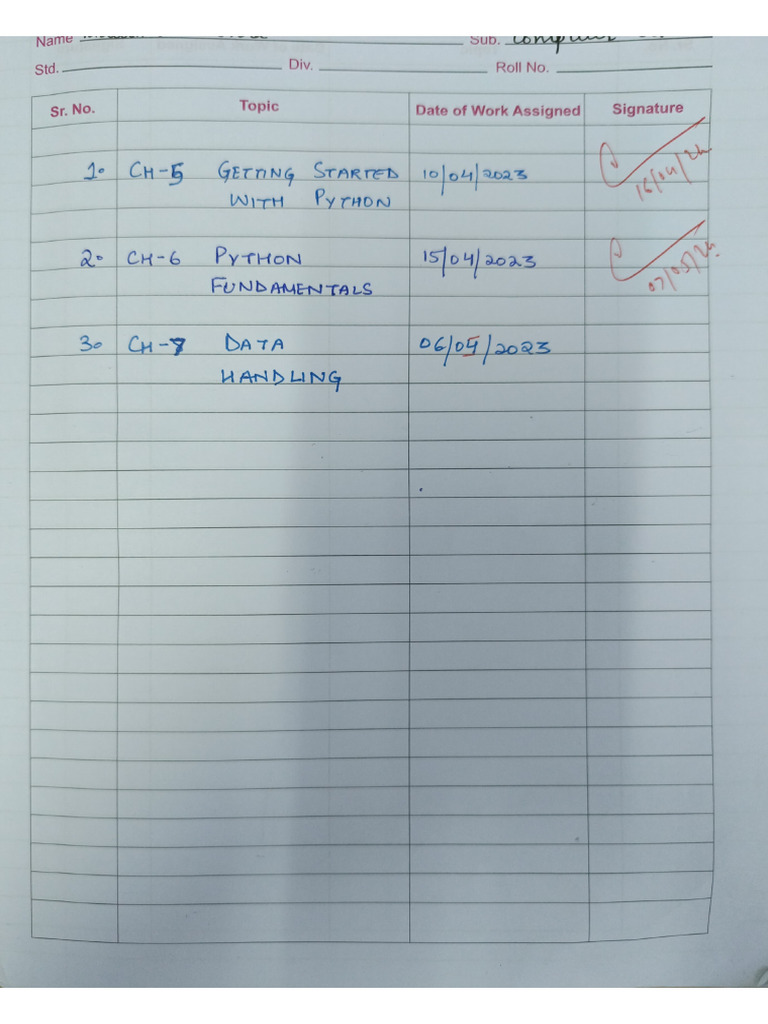 Name
Sub. Computer
Std. Div. Roll No.
Sr. No. Topic Date of Work Assigned Signature
1. CH-5 GETTING STARTED 10/04/2023
WITH PYTHON 16/04/24
2. CH-6 PYTHON 15/04/2023
FUNDAMENTALS 07/05/24
3. CH-7 DATA 06/05/2023
HANDLING